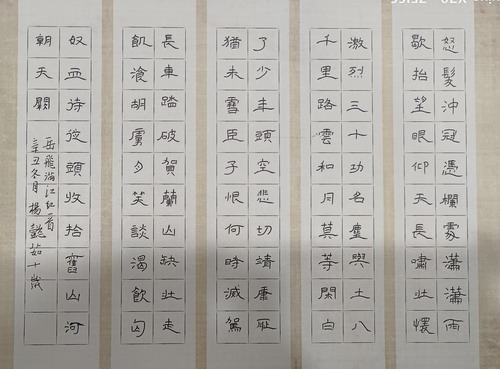 怒髮沖冠憑欄處瀟瀟雨
歇抬望眼仰天長嘯壯懷
激烈三十功名塵與土八
千里路雲和月莫等閑白
了少年頭空悲切靖康恥
猶未雪臣子恨何時滅駕
長車踏破賀蘭山缺壯志
飢湌胡虜肉笑談渴飲匈
奴血待從頭收拾舊山河
朝天闕
岳飛滿江紅一首
辛丑冬月楊懿茹十歲